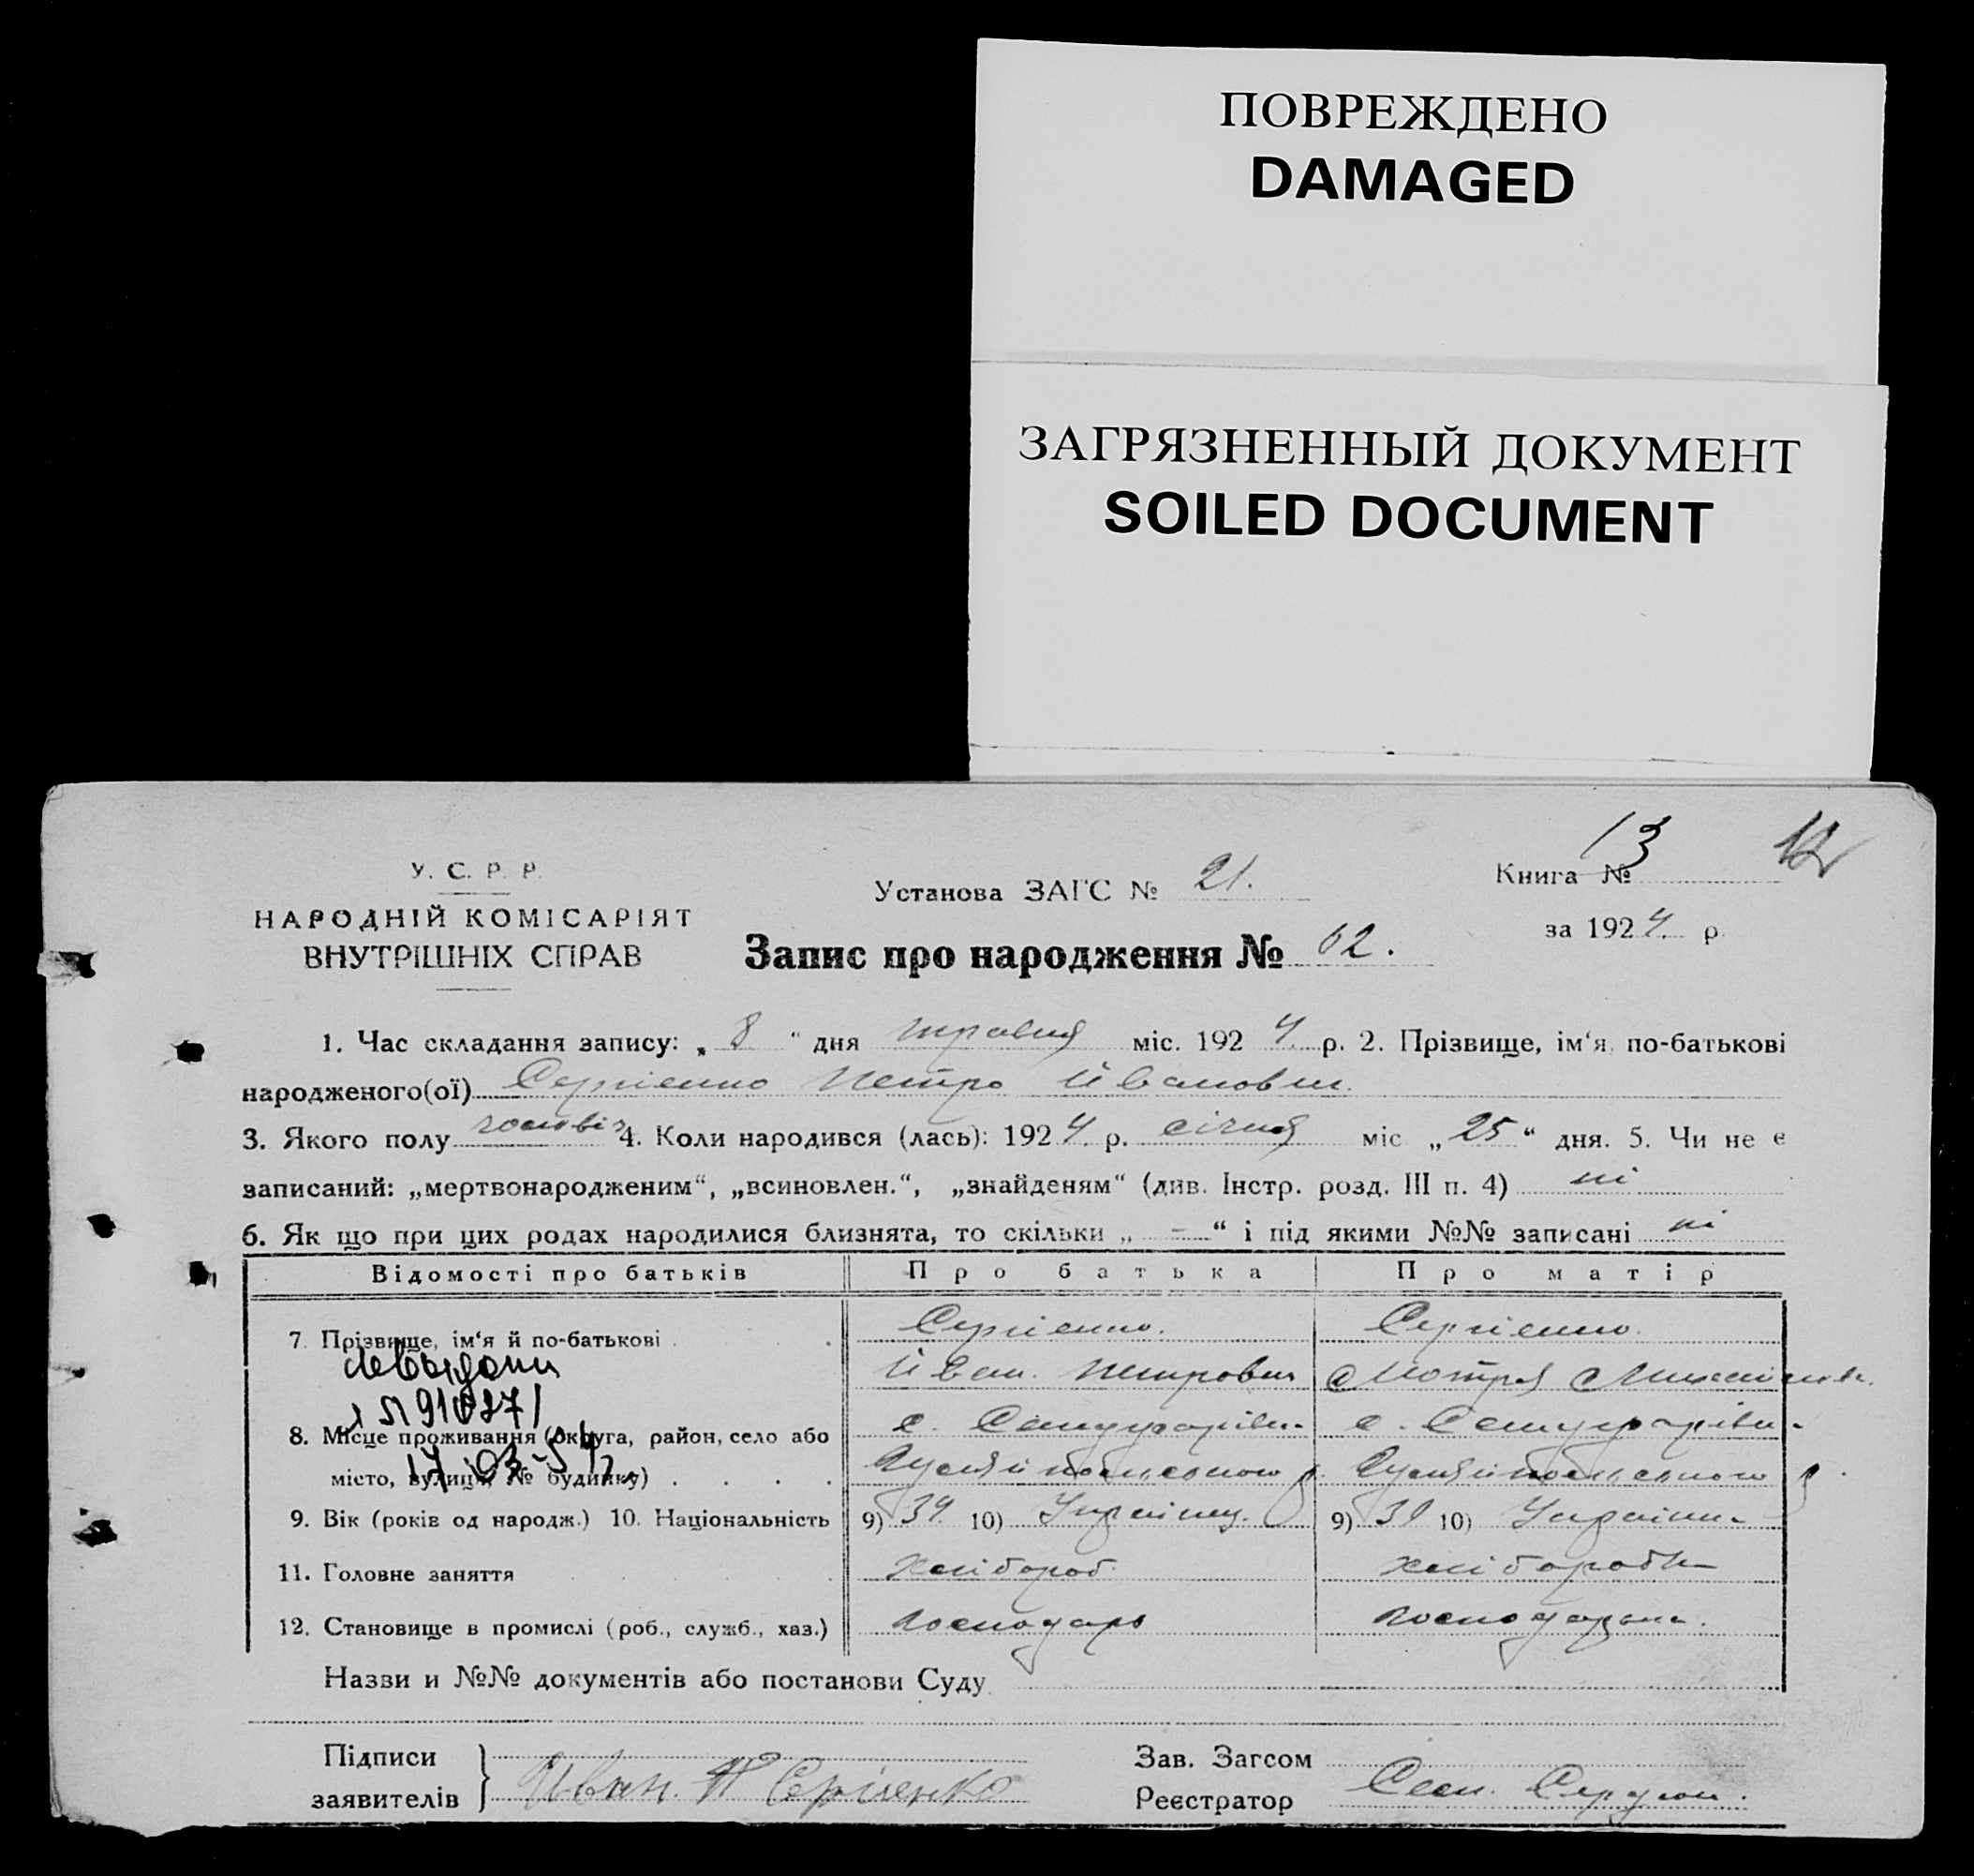 ПОВРЕЖДЕНО
DAMAGED
ЗАГРЯЗНЕННЫЙ ДОКУМЕНТ
SOILED DOCUMENT
13
У. С. Р. Р.
НАРОДНІЙ КОМІСАРІЯТ
ВНУТРІШНІХ СПРАВ
Установа ЗАГС № 21.
Книга №
за 1924 р.
Запис про народження № 62.
1. Час складання запису: „ 8 “ дня травня міс. 192 4 р. 2. Прізвище, ім‘я, по-батькові
народженого(ої) Сергієнко Петро Йванович.
3. Якого полу 4. Коли народився (лась): 192 4 р. січня міс „ 25 “ дня. 5. Чи не є
записаний: „мертвонародженим“, „всиновлен.“, „знайденям“ (див. Інстр. розд. III п. 4) ні
6. Як що при цих родах народилися близнята, то скільки „ – “ і під якими №№ записані ні
Відомості про батьків Про батька Про матір
7. Прізвище, ім‘я й по-батькові Сергієнко. Сергієнко.
Йван. Петрович Мотря
8. Місце проживання (округа, район, село або с. с.
місто, вулиця, № будинку)
17 03-54
9. Вік (років од народж.) 10. Національність 9) 34 10) Українец. 9) 30 10) Українк
11. Головне заняття Хлібороб. хлібаробк
12. Становище в промислі (роб., служб., хаз.) Господарь Господарька.
Назви и №№ документів або постанови Суду
Підписи заявителів Иван. П Сергіенко
Зав. Загсом
Реєстратор